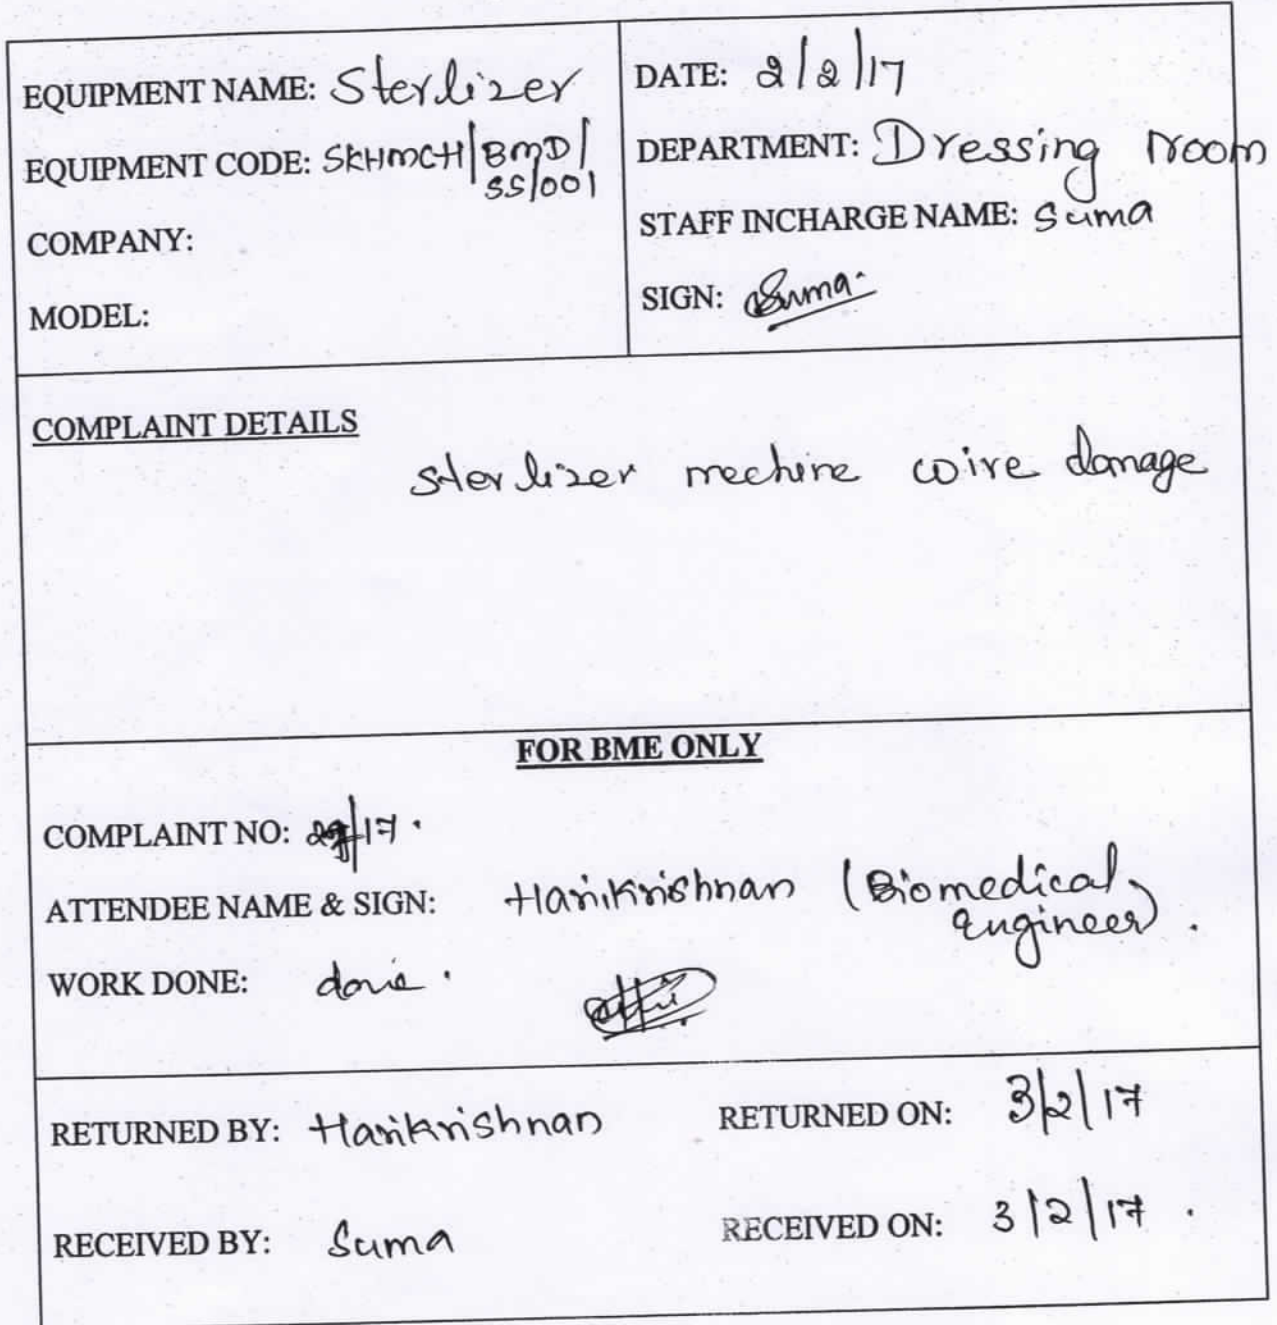 EQUIPMENT NAME: Sterlizer
EQUIPMENT CODE: SKHMCH/BMD/
SS/001
COMPANY:
MODEL:
DATE: 2/2/17
DEPARTMENT: Dressing room
STAFF INCHARGE NAME: Suma
SIGN: Suma
COMPLAINT DETAILS
Sterlizer mechine wire damage
FOR BME ONLY
COMPLAINT NO: /17.
ATTENDEE NAME & SIGN: Harikrishnan (Biomedical
Engineer).
WORK DONE: done.
RETURNED BY: Harikrishnan
RETURNED ON: 3/2/17
RECEIVED BY: Suma
RECEIVED ON: 3/2/17.